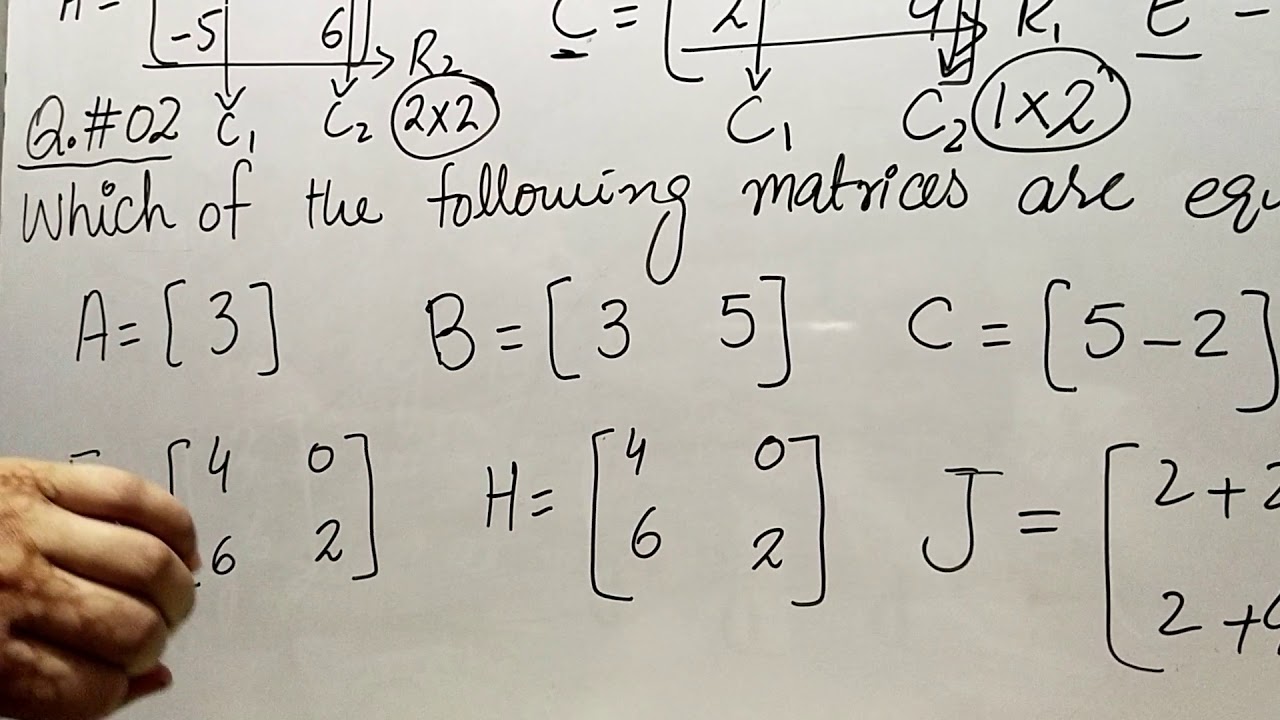 -5 6 R₂ C = [ 2 4 ] R₁
Q.#02 C₁ C₂ 2×2 C₁ C₂ 1×2
Which of the following matrices are equ
A = [3] B = [3 5] C = [5-2]
[4 0 H = [4 0 J = [2+2
6 2] 6 2] 2+